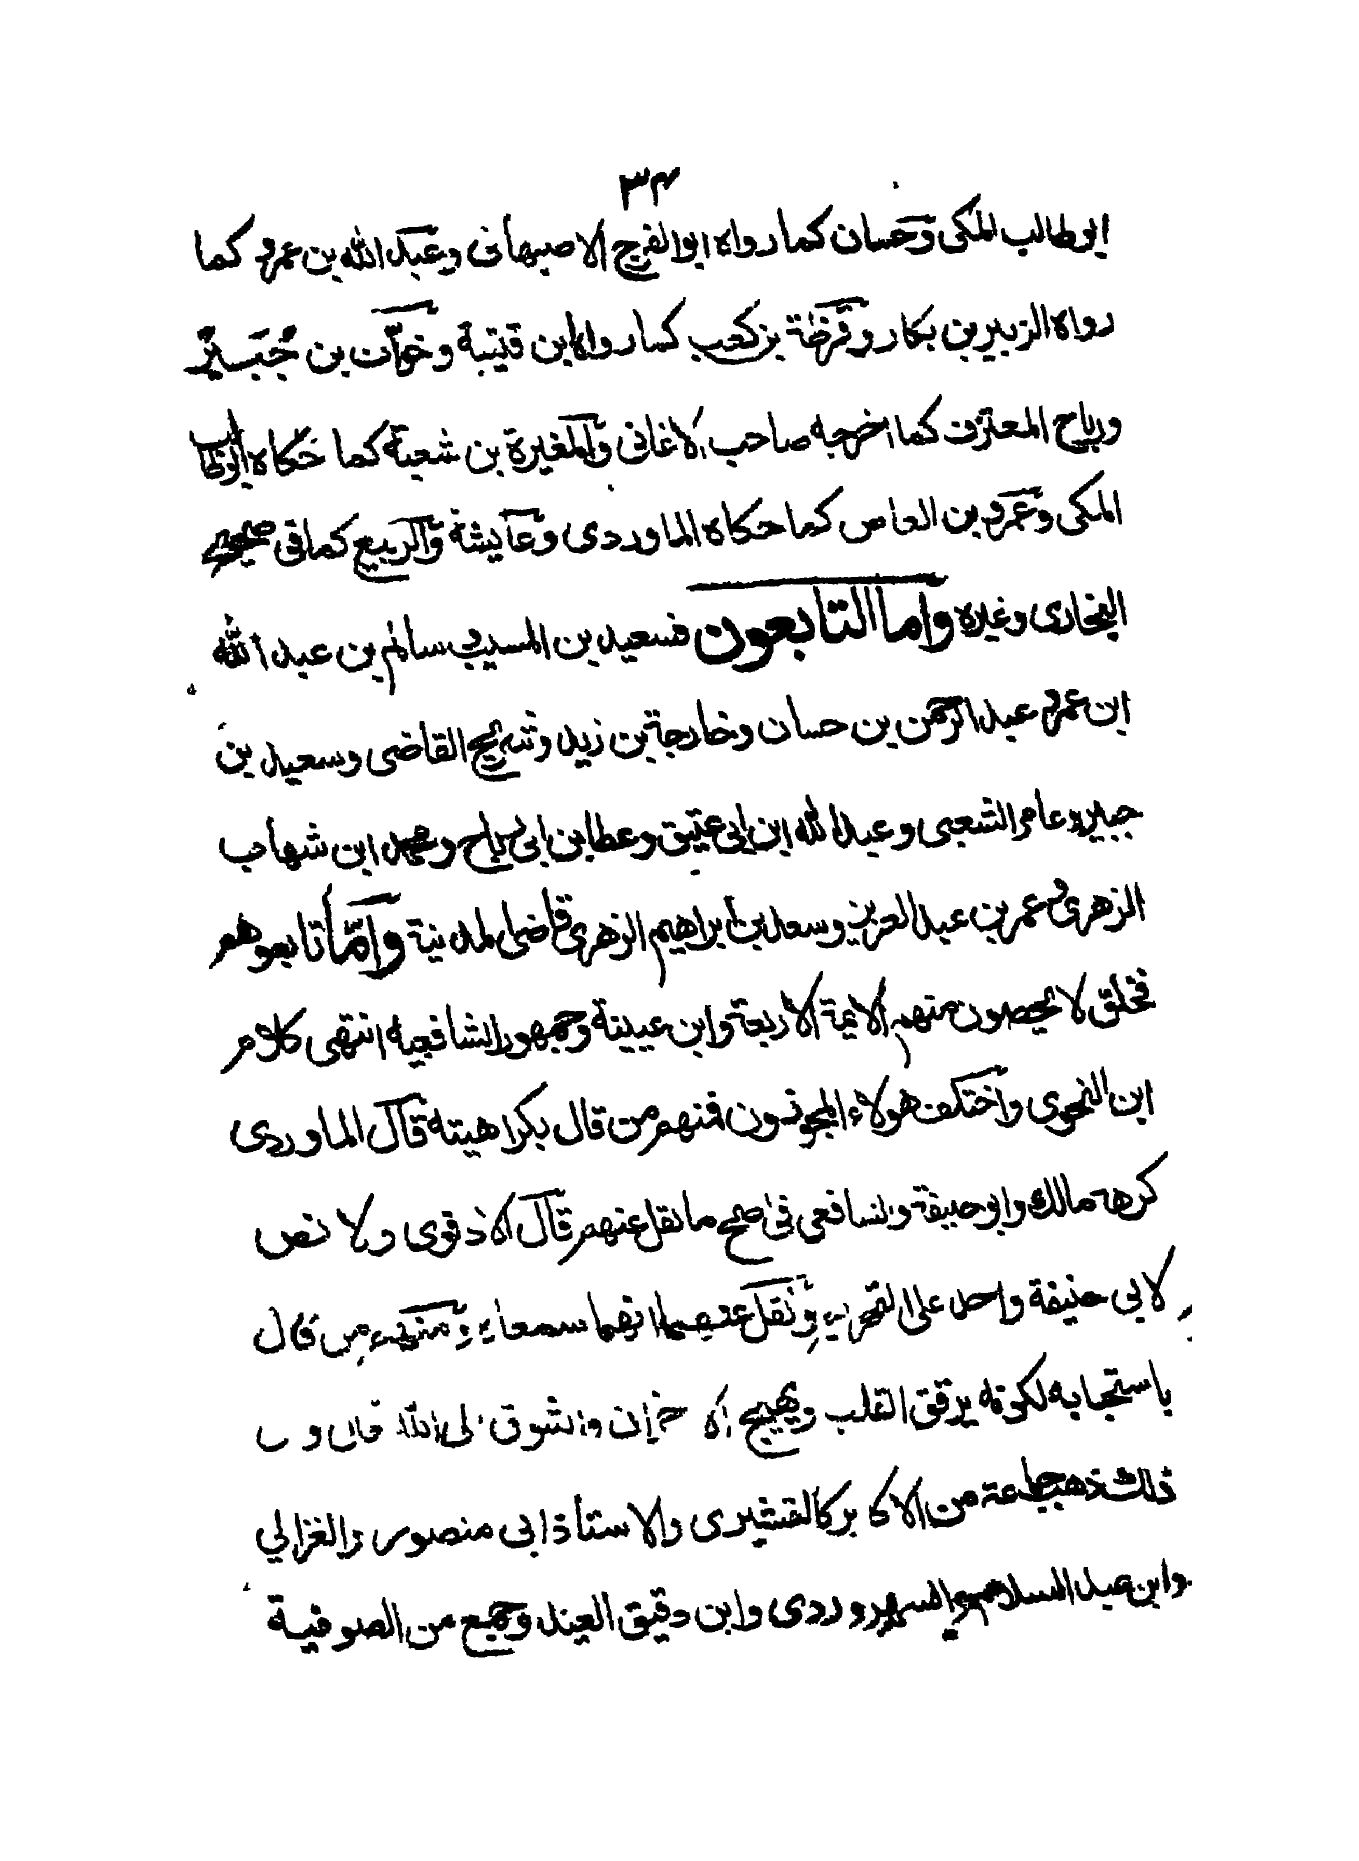 ٣٤
ابو طالب المكى وحسان كما رواه ابو الفرج الاصبهانى وعبد الله بن عمرو كما
رواه الزبير بن بكار وقرظة بن كعب كما رواه ابن قتيبة وخوات بن جُبَيرٌ
ورباح المعترف كما اخرجه صاحب الاغانى والمغيرة بن شعبة كما حكاه ابو طالب
المكى وعمرو بن العاص كما حكاه الماوردى وعايشة والربيع كما فى صحيح
البخارى وغيره واما التابعون فسعيد بن المسيب وسالم بن عبد الله
ابن عمر وعبد الرحمن بن حسان وخارجة بن زيد وشريح القاضى وسعيد بن
جبير وعامر الشعبى وعبد الله ابن ابى عتيق وعطا بن ابى رباح ومحمد ابن شهاب
الزهرى وعمر بن عبد العزيز وسعد بن ابراهيم الزهرى قاضى المدينة وامّا تابعوهم
فخلق لا يحصون منهم الائمة الاربعة وابن عيينة وجمهور الشافعية انتهى كلام
ابن النحوى واختلف هولاء المجوزون فمنهم من قال بكراهيته قال الماوردى
كرهه مالك وابو حنيفة والشافعى فى اصح ما نقل عنهم قال الاذفوى ولا نص
لابى حنيفة واحمد على التحريم ونقل عنهما انهما سمعاه ومنهم من قال
باستحبابه لكونه يرقق القلب ويهيج الاحزان والشوق الى الله قال و
ذلك ذهب جماعة من الاكابر كالقشيرى والاستاذ ابى منصور والغزالي
وابن عبد السلام والسهروردى وابن دقيق العيد وجمع من الصوفية